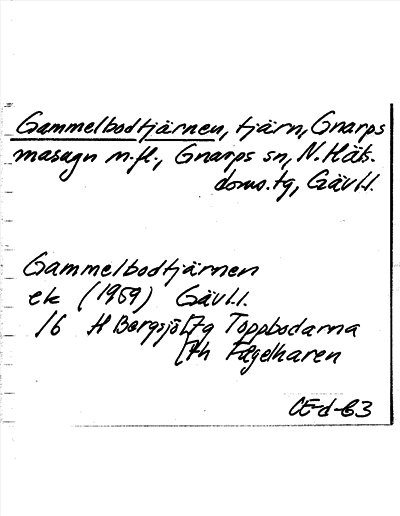 Gammelbodtjärnen, tjärn, Gnarps
masugn m.fl., Gnarps sn, N. Häls.
doms.tg, Gävl.l.
Gammelbodtjärnen
ek (1959) Gävl.l.
16 H Bergsjö [7g Toppbodarna
[7h Fågelharen